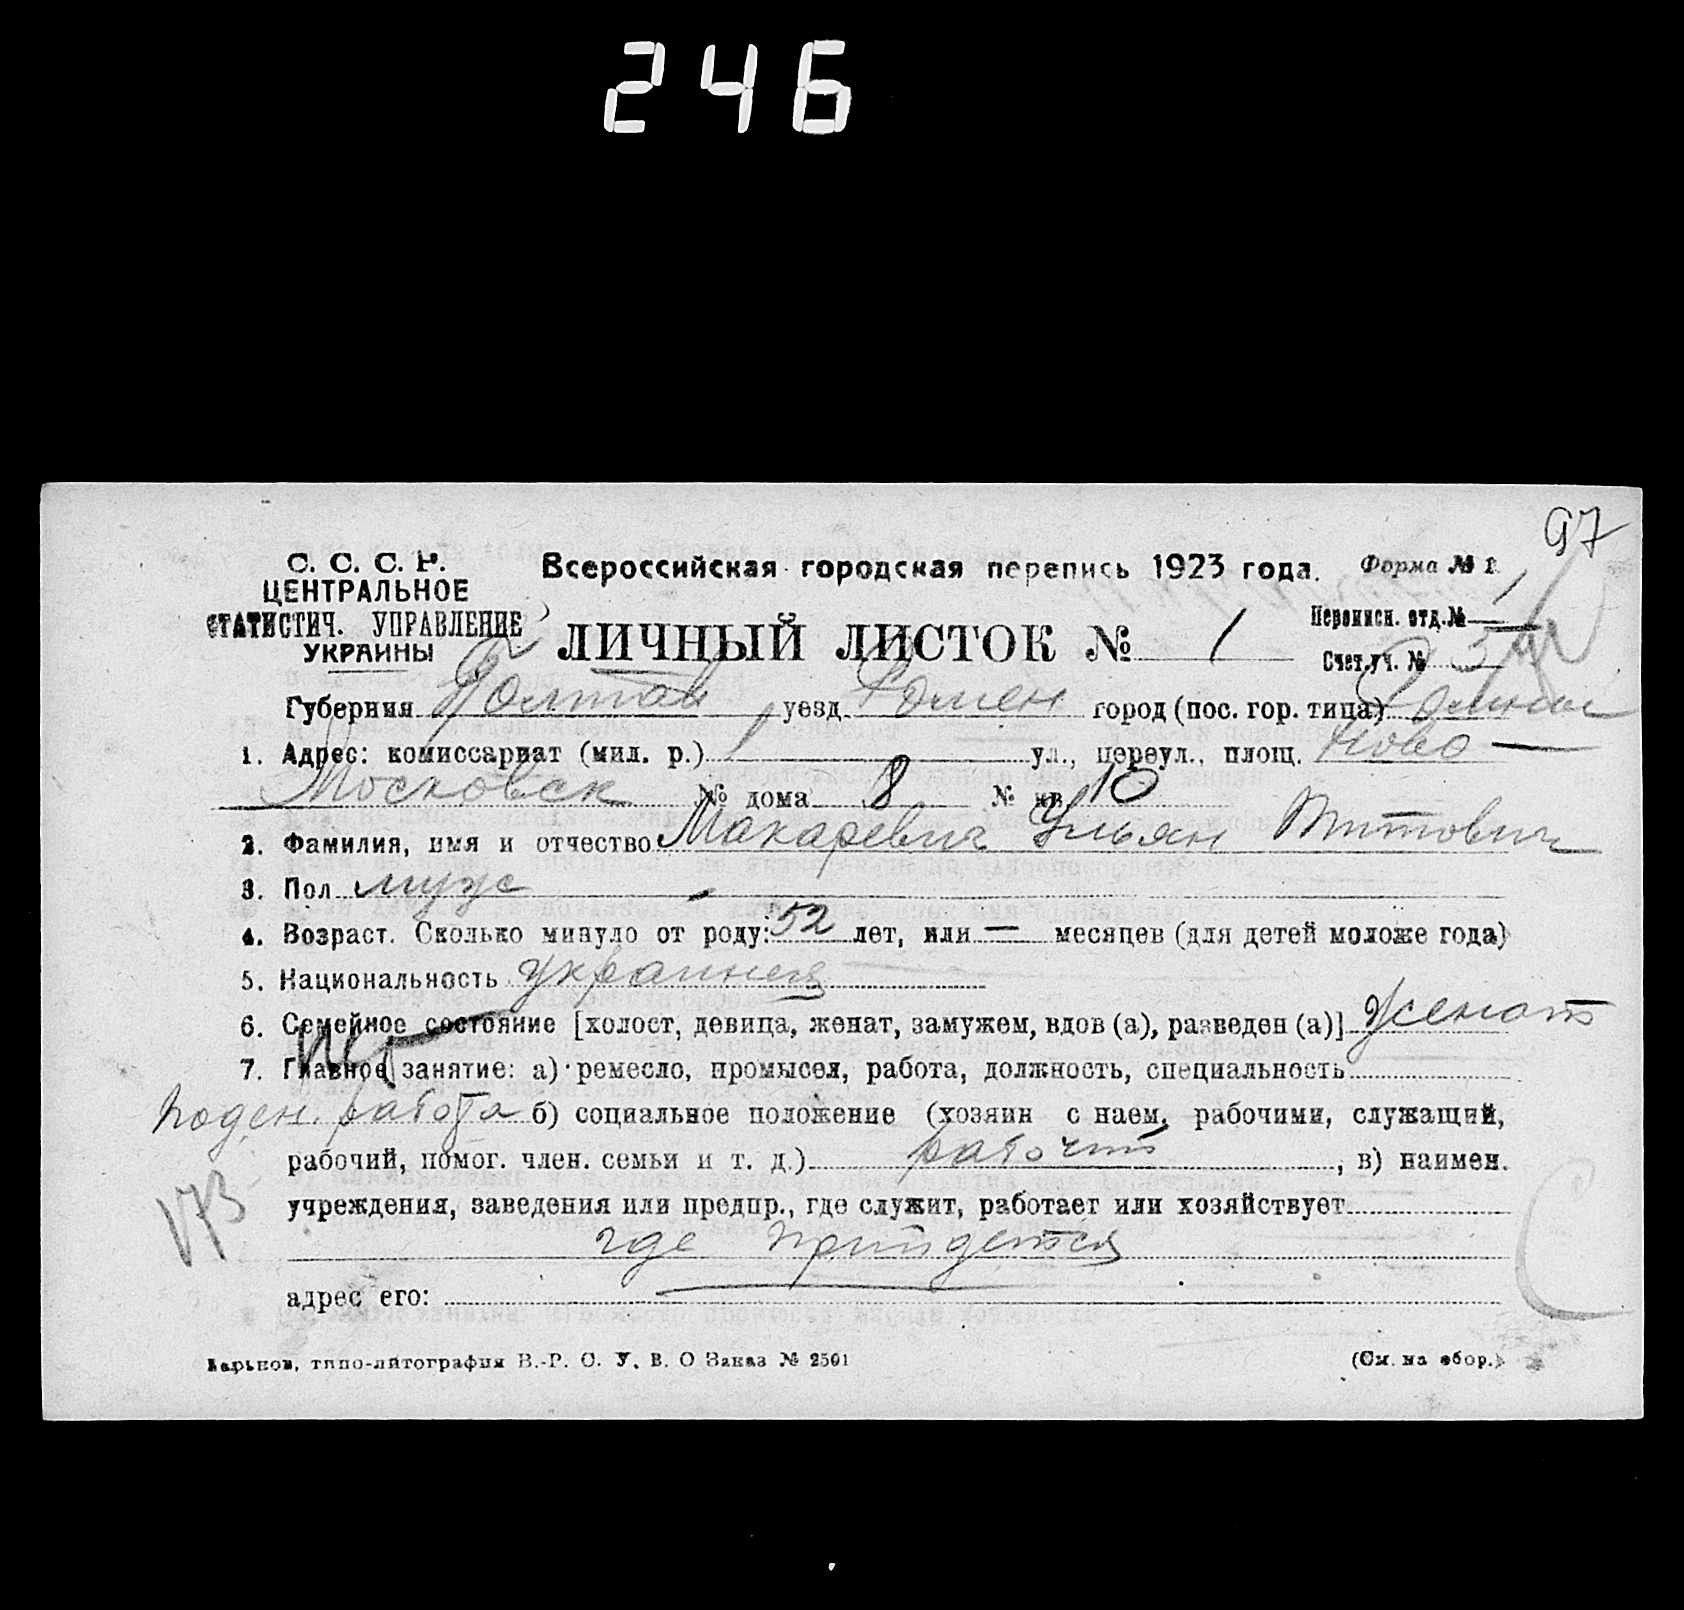 246
97
С. С. С. Р.
ЦЕНТРАЛЬНОЕ
СТАТИСТИЧ. УПРАВЛЕНИЕ
УКРАИНЫ
Всероссийская городская перепись 1923 года.
Форма № 1
ЛИЧНЫЙ ЛИСТОК № 1
Переписн. отд. № 1
Счет. уч. №
Губерния Полтав уезд Ромен город (пос. гор. типа) Ромны
1. Адрес: комиссариат (мил. р.) ул., переул., площ. Ново —
Московск № дома 8 № кв. 10
2. Фамилия, имя и отчество Макаревич Ульян Титович
3. Пол муж
4. Возраст. Сколько минуло от роду: 52 лет, или — месяцев (для детей моложе года)
5. Национальность украинец
6. Семейное состояние [холост, девица, женат, замужем, вдов (а), разведен (а)] женат
7. Главное занятие: а) ремесло, промысел, работа, должность, специальность
поден. работа б) социальное положение (хозяин с наем. рабочими, служащий,
рабочий, помог. член. семьи и т. д.) рабочий, в) наимен.
173
учреждения, заведения или предпр., где служит, работает или хозяйствует
где прийдется
адрес его:
Харьков, типо-литография В.-Р. С. У. В. О Заказ № 2501
(См. на обор.)